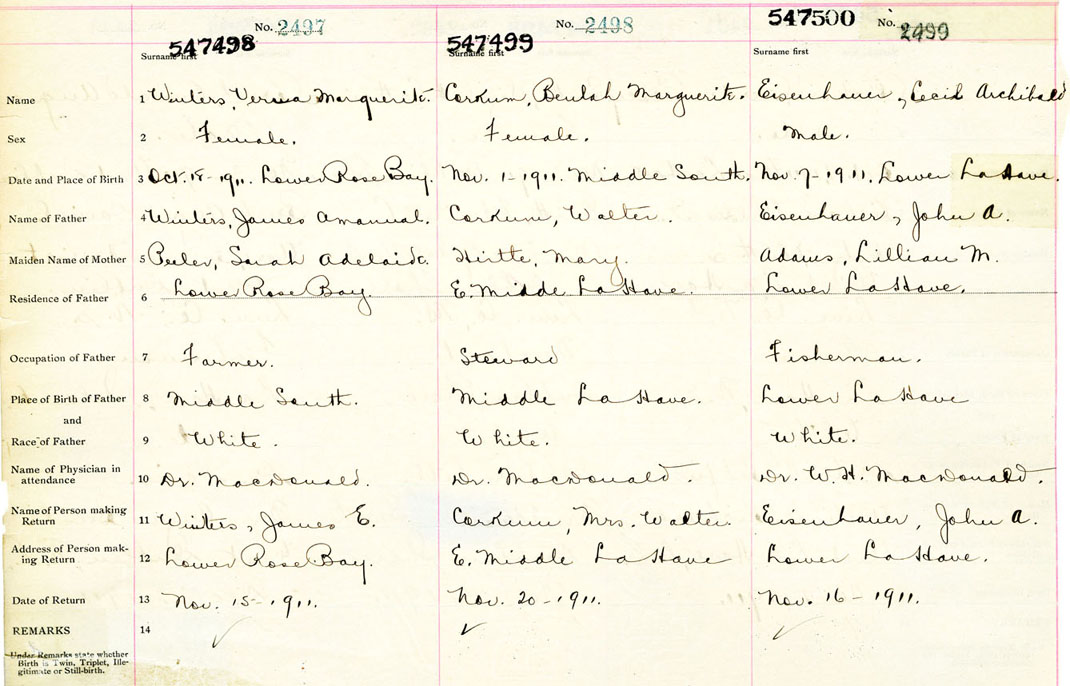 No. 2497 No. 2498 547500 No. 2499
547498 547499
Surname first Surname first Surname first
Name 1 Winters, Verna Marguerite. Corkum, Beulah Marguerite. Eisenhauer, Cecil Archibald
Sex 2 Female. Female. Male.
Date and Place of Birth 3 Oct. 18-1911. Lower Rose Bay. Nov. 1-1911. Middle South. Nov. 7-1911. Lower LaHave.
Name of Father 4 Winters, James Amanual. Corkum, Walter. Eisenhauer, John A.
Maiden Name of Mother 5 Peeler, Sarah Adelaide. Hirtle, Mary. Adams, Lillian M.
Residence of Father 6 Lower Rose Bay. E. Midde LaHave. Lower LaHave.
Occupation of Father 7 Farmer. Steward Fisherman.
Place of Birth of Father 8 Middle South. Middle LaHave. Lower LaHave
and
Race of Father 9 White. White. White.
Name of Physician in
attendance 10 Dr. MacDonald. Dr. MacDonald. Dr. W. H. MacDonald.
Name of Person making
Return 11 Winters, James E. Corkum, Mrs. Walter. Eisenhauer, John A.
Address of Person mak-
ing Return 12 Lower Rose Bay. E. Middle LaHave Lower LaHave.
Date of Return 13 Nov. 15-1911. Nov. 20-1911. Nov. 16-1911.
REMARKS 14
Under Remarks state whether
Birth is Twin, Triplet, Ille-
gitimate or Still-birth.